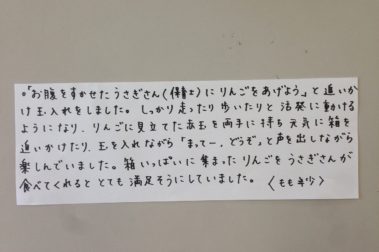 。「お腹をすかせたうさぎさん(保育士)にりんごをあげよう」と追いか
け玉入れをしました。しっかり走ったり歩いたりと活発に動ける
ようになり、りんごに見立てた赤玉を両手に持ち元気に箱を
追いかけたり、玉を入れながら「まってー、どうぞ」と声を出しながら
楽しんでいました。箱いっぱいに集まったりんごをうさぎさんが
食べてくれると とても満足そうにしていました。 〈もも